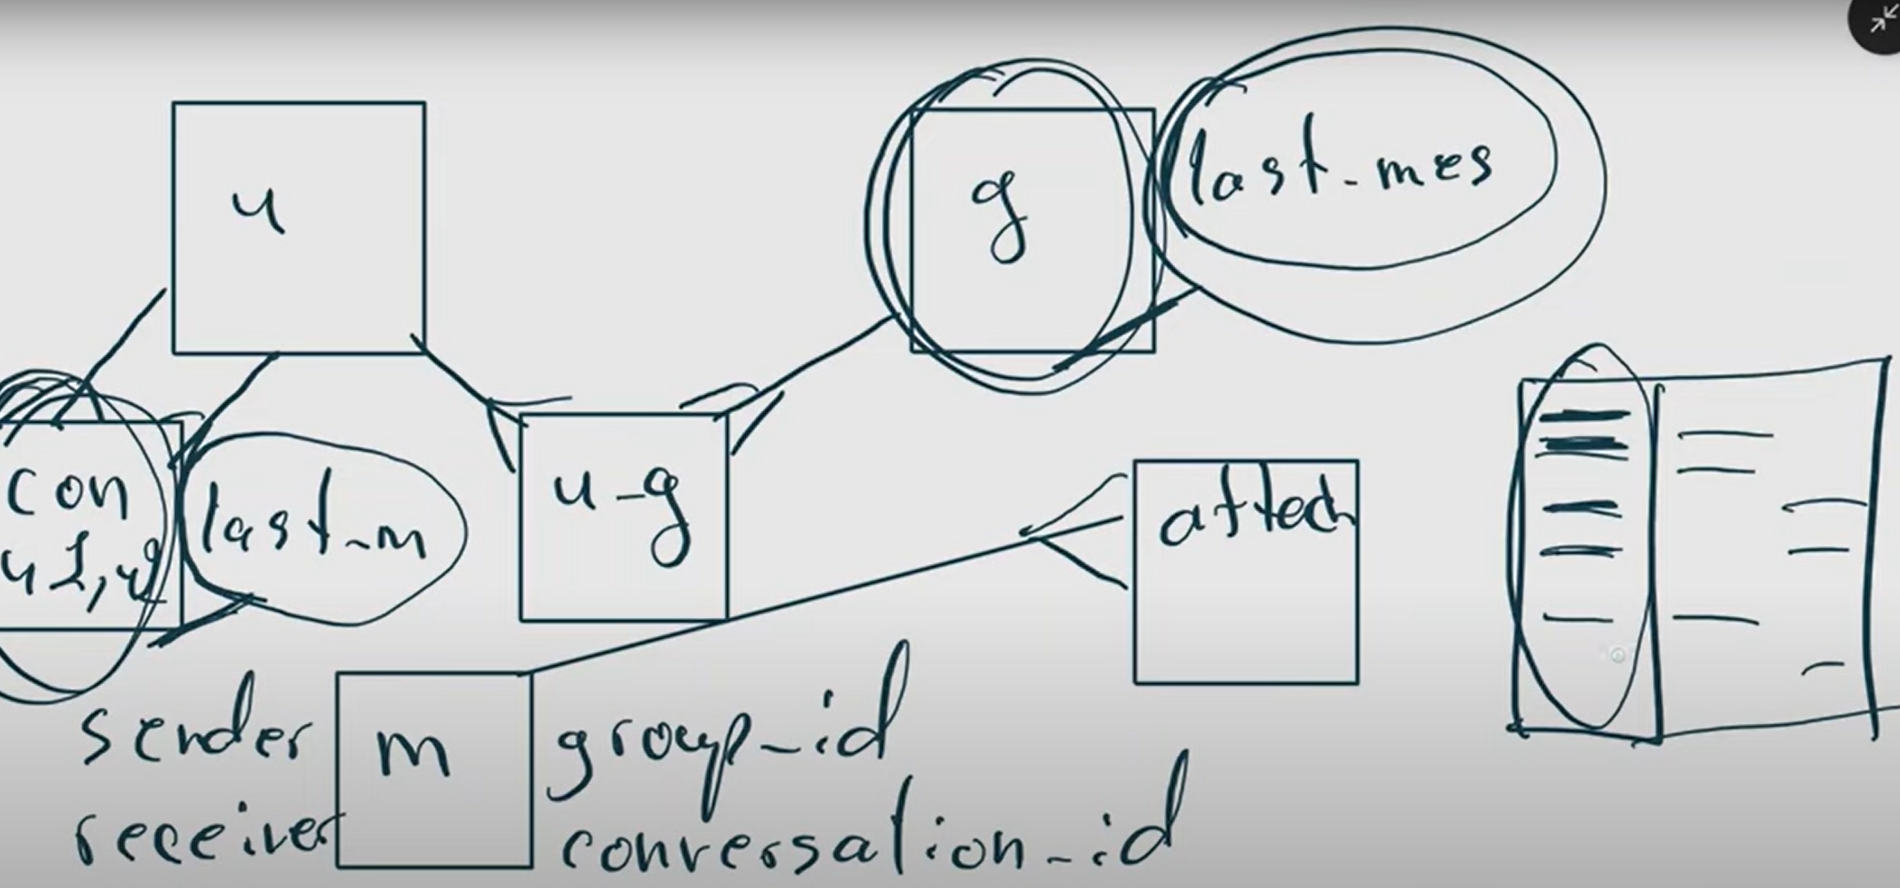 u
g
last_mes
con
u1,u2
last_m
u_g
attach
sender
receiver
m
group_id
conversation_id